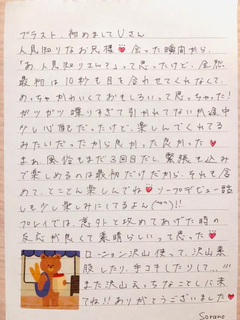 プラスト、初めましてUさん
人見知りなお兄様♥会った瞬間から、
「あ、人見知りさんだ」って思ったけど、全然
最初は10秒も目を合わせてくれなくて、
めっちゃかわいくておもしろいって思っちゃった!
ガツガツ喋りすぎて引かれてないか途中
少し心配だったけど、楽しんでくれてる
みたいだったから良かった良かった♥
まあ、風俗もまだ3回目だし緊張も込み
で楽しめるのは最初だけだから、それも含
めて、とことん楽しんでね♥ソープデビュー話
しも少し楽しみにしてるよん(^^)!!
プレイでは、意外と攻めてあげた時の
反応が良くて素晴らしいって思った♥
ローション沢山使って、沢山素
股したり、手コキしたりして...!!!
また沢山えっちなことしに来
てね!!ありがとうございました♥
Sorano